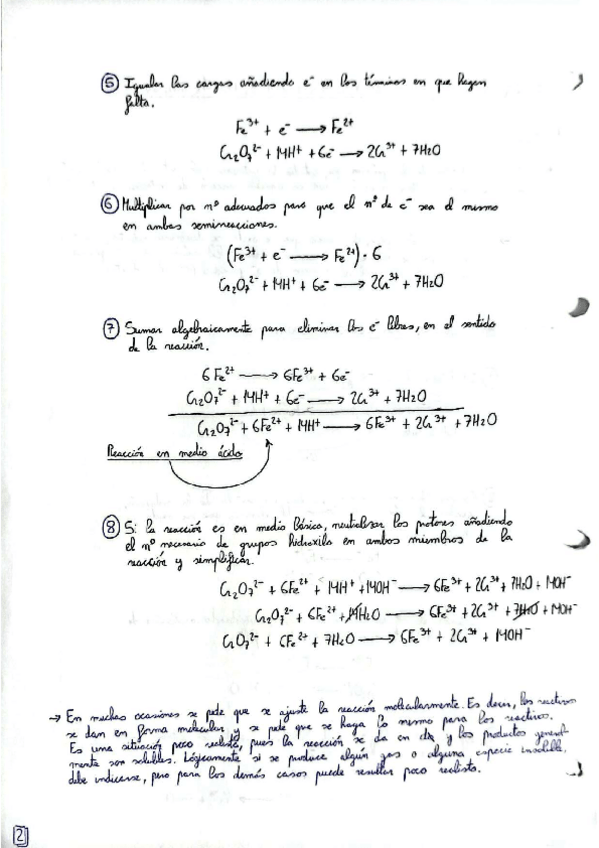 ⑤ Igualar las cargas añadiendo e⁻ en los términos en que hagan
falta.
Fe³⁺ + e⁻ ⟶ Fe²⁺
Cr₂O₇²⁻ + 14H⁺ + 6e⁻ ⟶ 2Cr³⁺ + 7H₂O
⑥ Multiplicar por nº adecuados para que el nº de e⁻ sea el mismo
en ambas semirreacciones.
(Fe³⁺ + e⁻ ⟶ Fe²⁺) · 6
Cr₂O₇²⁻ + 14H⁺ + 6e⁻ ⟶ 2Cr³⁺ + 7H₂O
⑦ Sumar algebraicamente para eliminar los e⁻ libres, en el sentido
de la reacción.
6Fe²⁺ ⟶ 6Fe³⁺ + 6e⁻
Cr₂O₇²⁻ + 14H⁺ + 6e⁻ ⟶ 2Cr³⁺ + 7H₂O
Cr₂O₇²⁻ + 6Fe²⁺ + 14H⁺ ⟶ 6Fe³⁺ + 2Cr³⁺ + 7H₂O
Reacción en medio ácido
⑧ Si la reacción es en medio básico, neutralizar los protones añadiendo
el nº necesario de grupos hidroxilo en ambos miembros de la
reacción y simplificar.
Cr₂O₇²⁻ + 6Fe²⁺ + 14H⁺ + 14OH⁻ ⟶ 6Fe³⁺ + 2Cr³⁺ + 7H₂O + 14OH⁻
Cr₂O₇²⁻ + 6Fe²⁺ + 14H₂O ⟶ 6Fe³⁺ + 2Cr³⁺ + 7H₂O + 14OH⁻
Cr₂O₇²⁻ + 6Fe²⁺ + 7H₂O ⟶ 6Fe³⁺ + 2Cr³⁺ + 14OH⁻
→ En muchas ocasiones se pide que se ajuste la reacción molecularmente. Es decir, los reactivos
se dan en forma molecular y se pide que se haga lo mismo para los reactivos.
Es una situación poco realista, pues la reacción se da en dx y los productos general-
mente son solubles. Lógicamente si se produce algún gas o alguna especie insoluble,
debe indicarse, pero para los demás casos puede resultar poco realista.
2